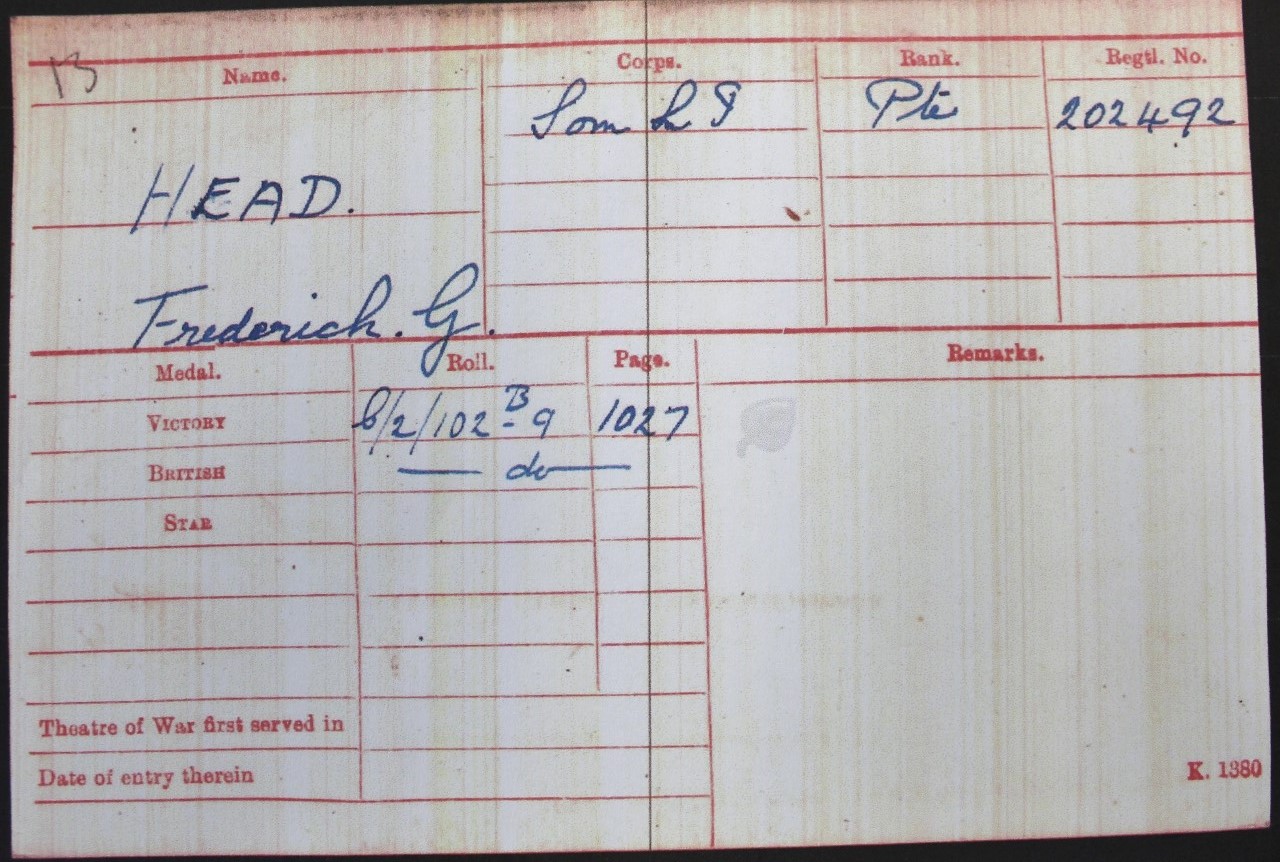 13
Name. Corps. Rank. Regtl. No.
Som L I Pte 202492
HEAD.
Frederick. G.
Medal. Roll. Page. Remarks.
VICTORY 6/2/102 B-9 1027
BRITISH — do —
STAR
Theatre of War first served in
Date of entry therein
K. 1380